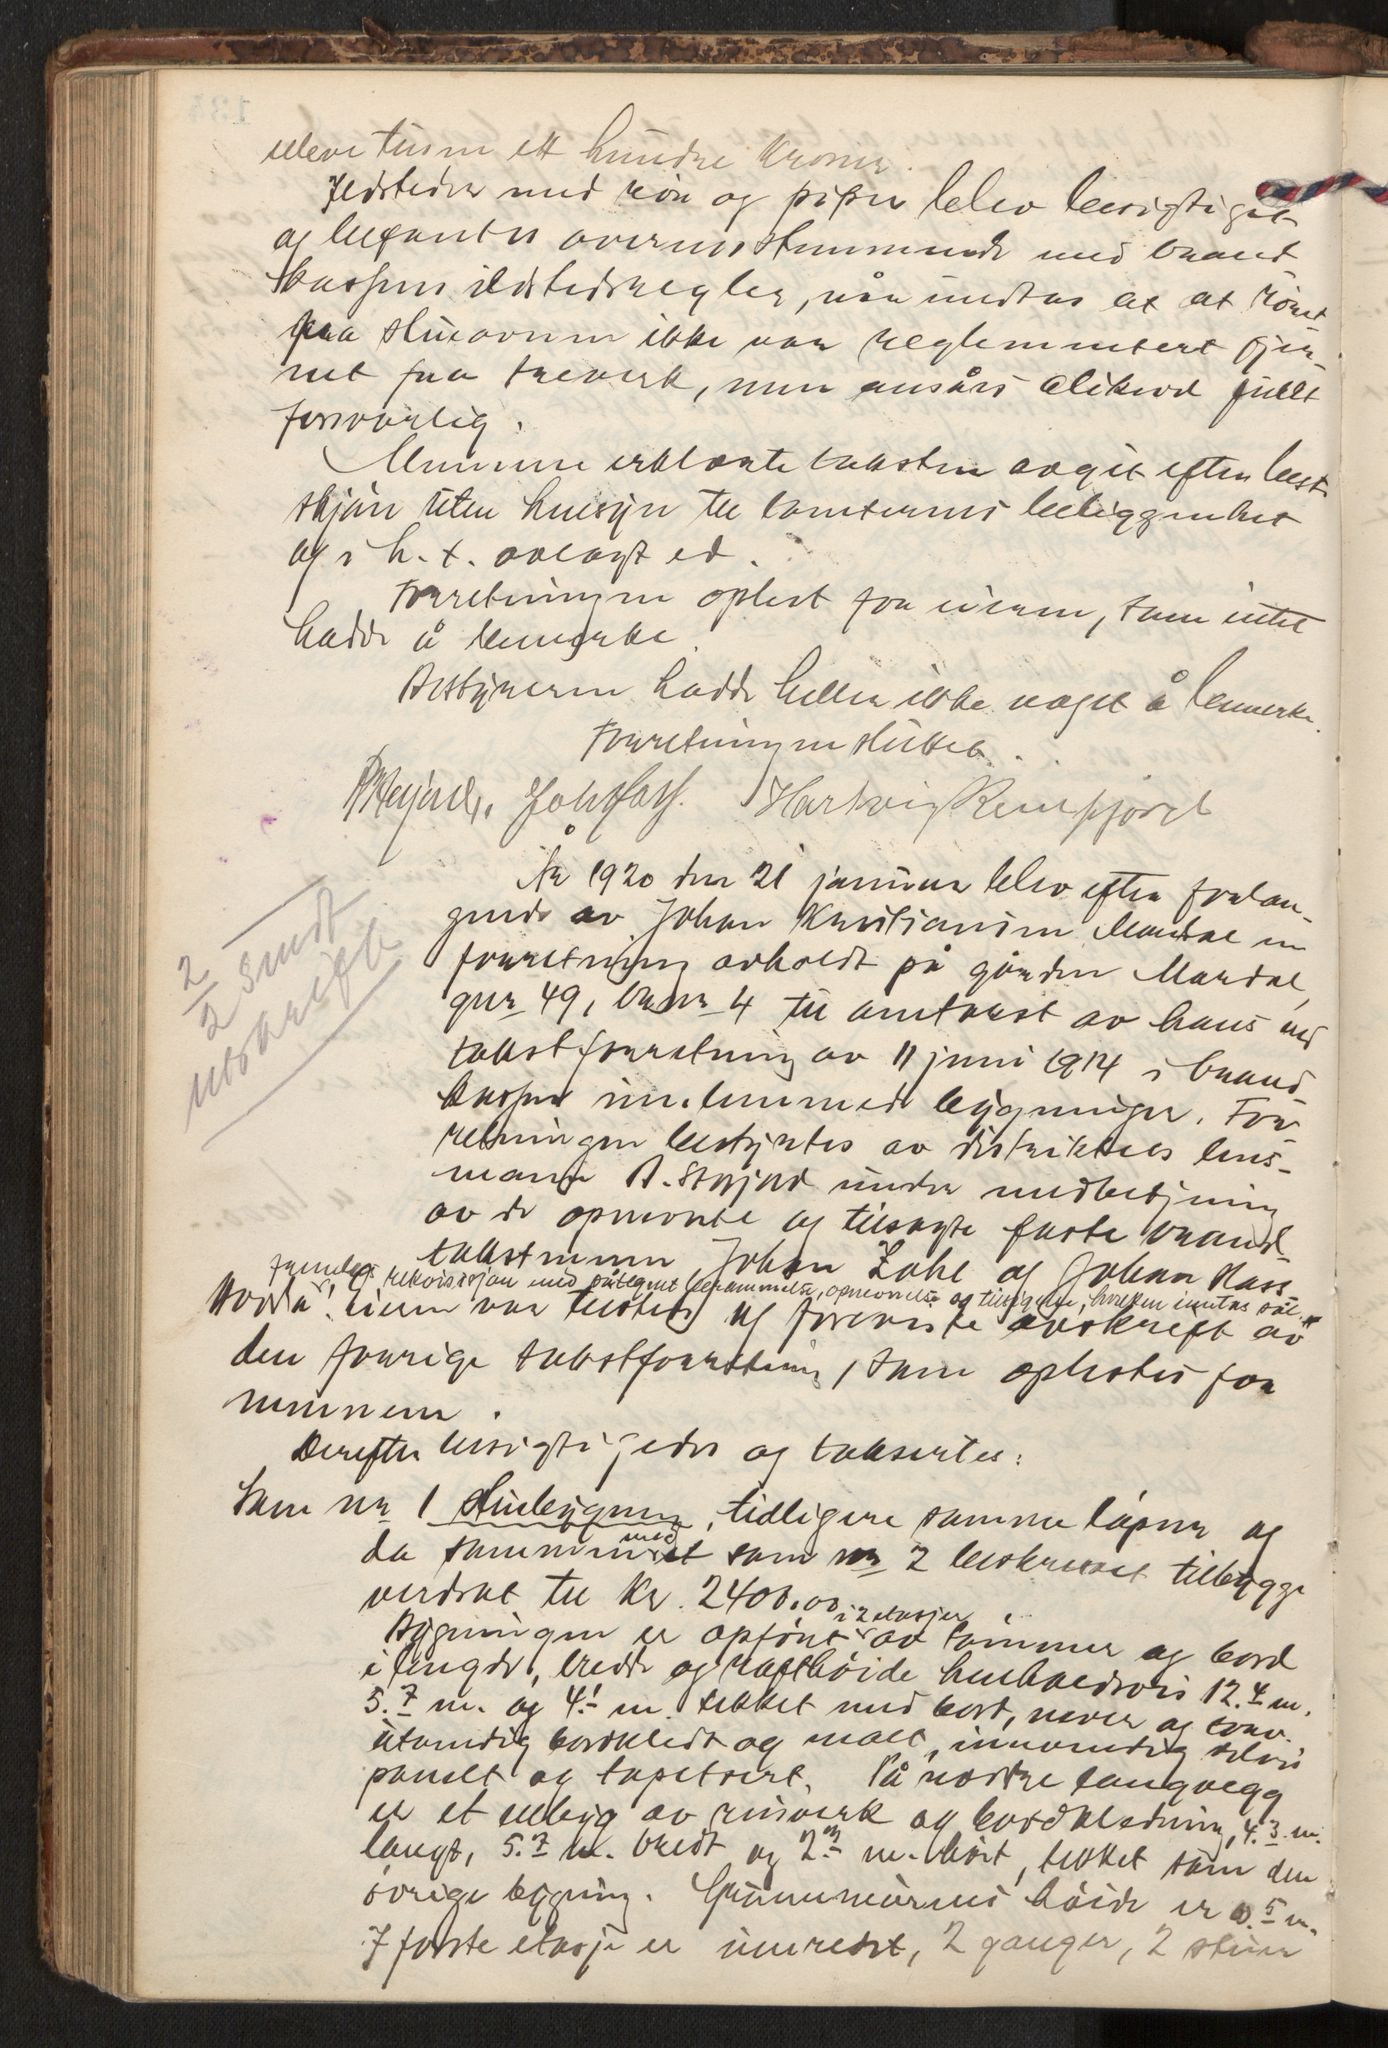 elleve tusen ett hundre kroner.
Ildsteder med rör og piper blev besigtiget
og befantes overensstemmende med brand
kassens ildstedsregler, når undtas at at röret
fra stueovnen ikke var reglementert fjer-
net fra treverk, men ansåes allikevel fullt
forsvarlig.
Mennene erklærte taksten avgit efter beste
skjön uten hensyn til tomternes beliggenhet
og i h. t. avlagt ed.
Forretningen oplest for eieren, som intet
hadde å bemerke.
Bestyreren hadde heller ikke noget å bemerke.
Forretningen sluttet.
Hartvig Remfjord
År 1920 den 21 januar blev efter forlan-
gende av Johan Kristiansen Mardal en
forretning avholdt på gården Mardal,
gnr 49, brnr 4 til omtakst av hans ved
takstforretning av 11 juni 1914 i brand-
kassen innlemmede bygninger. For-
retningen bestyrtes av distriktets lens-
mann A. Stejord under medbetjening
av de opnevnte og tilsagte faste brand-
takstmenn Johan Zahl og Johan Hass
2/2 Sendt
utskrift
fremlagt rekvisisjon med påtegnet berammelse, opnevnelse og tilsigelse, hvilken inntas såle.
Hovda. Eieren var tilstede og foreviste avskrift av
den forrige takstforretning, som oplestes for
mennene.
Derefter besigtigedes og takseredes:
Som nr 1 Stuebygning, tidligere samme löpnr og
da sammen med et som nr 2 beskrevet tilbygge
verdsat til kr. 2400.00
Bygningen er opfört i 2 etasjer av tömmer og bord
i lengde, bredde og rafthöide henholdsvis 12.4 m.
5.7 m. og 4.1 m. tekket med bord, never og torv.
utvendig bordkledt og malt, innvendig delvis
panelt og tapetsert. På nordre langvegg
er et tilbyg av reisverk og bordkledning, 4.3 m.
langt, 5.7 m. bredt og 2.m m. höit, tekket som den
övrige bygning. Grunnmurens höide er 0.5 m.
I förste etasje er innredet, 2 ganger, 2 stuer